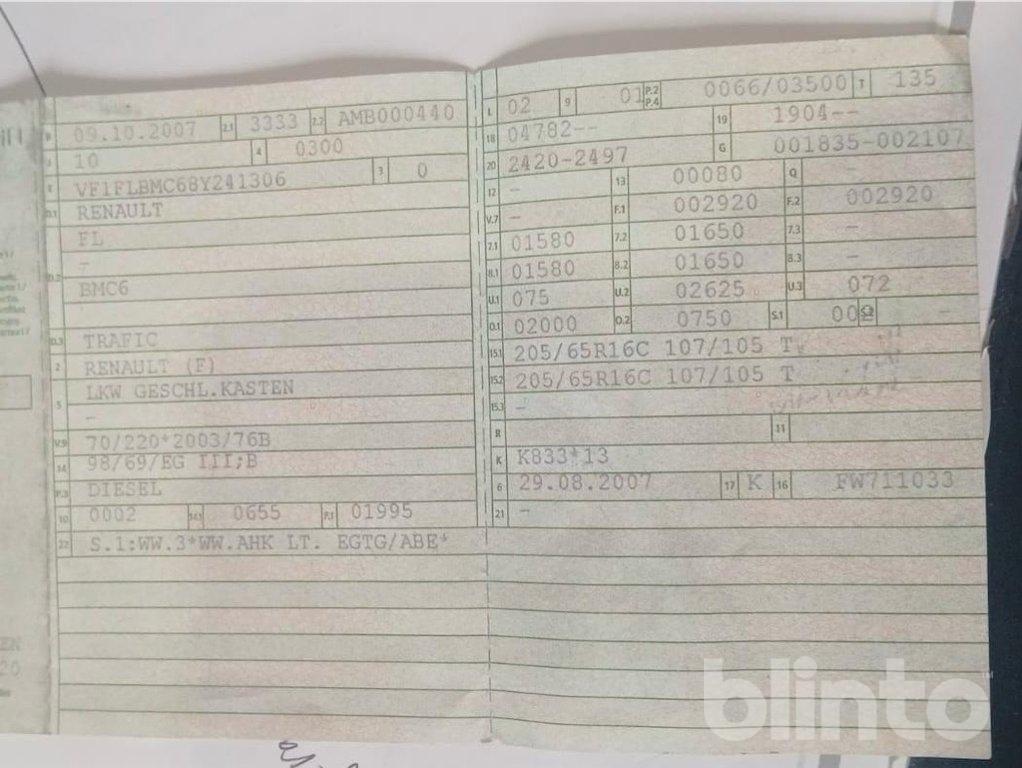 B 09.10.2007 2.1 3333 2.2 AMB000440
J 10 4 0300
E VF1FLBMC68Y241306 3 0
D.1 RENAULT
FL
D.2 -
BMC6
D.3 TRAFIC
2 RENAULT (F)
5 LKW GESCHL.KASTEN
-
V.9 70/220*2003/76B
14 98/69/EG III;B
P.3 DIESEL
10 0002 14.1 0655 P.1 01995
22 S.1:WW.3*WW.AHK LT. EGTG/ABE*
L 02 9 01 P.2 P.4 0066/03500 T 135
18 04782-- 19 1904--
20 2420-2497 G 001835-002107
12 - 13 00080 Q -
V.7 - F.1 002920 F.2 002920
7.1 01580 7.2 01650 7.3 -
8.1 01580 8.2 01650 8.3 -
U.1 075 U.2 02625 U.3 072
O.1 02000 O.2 0750 S.1 00 S.2 -
15.1 205/65R16C 107/105 T
15.2 205/65R16C 107/105 T
15.3 -
R 11
K K833*13
6 29.08.2007 17 K 16 FW711033
21 -
EN
20
blinto